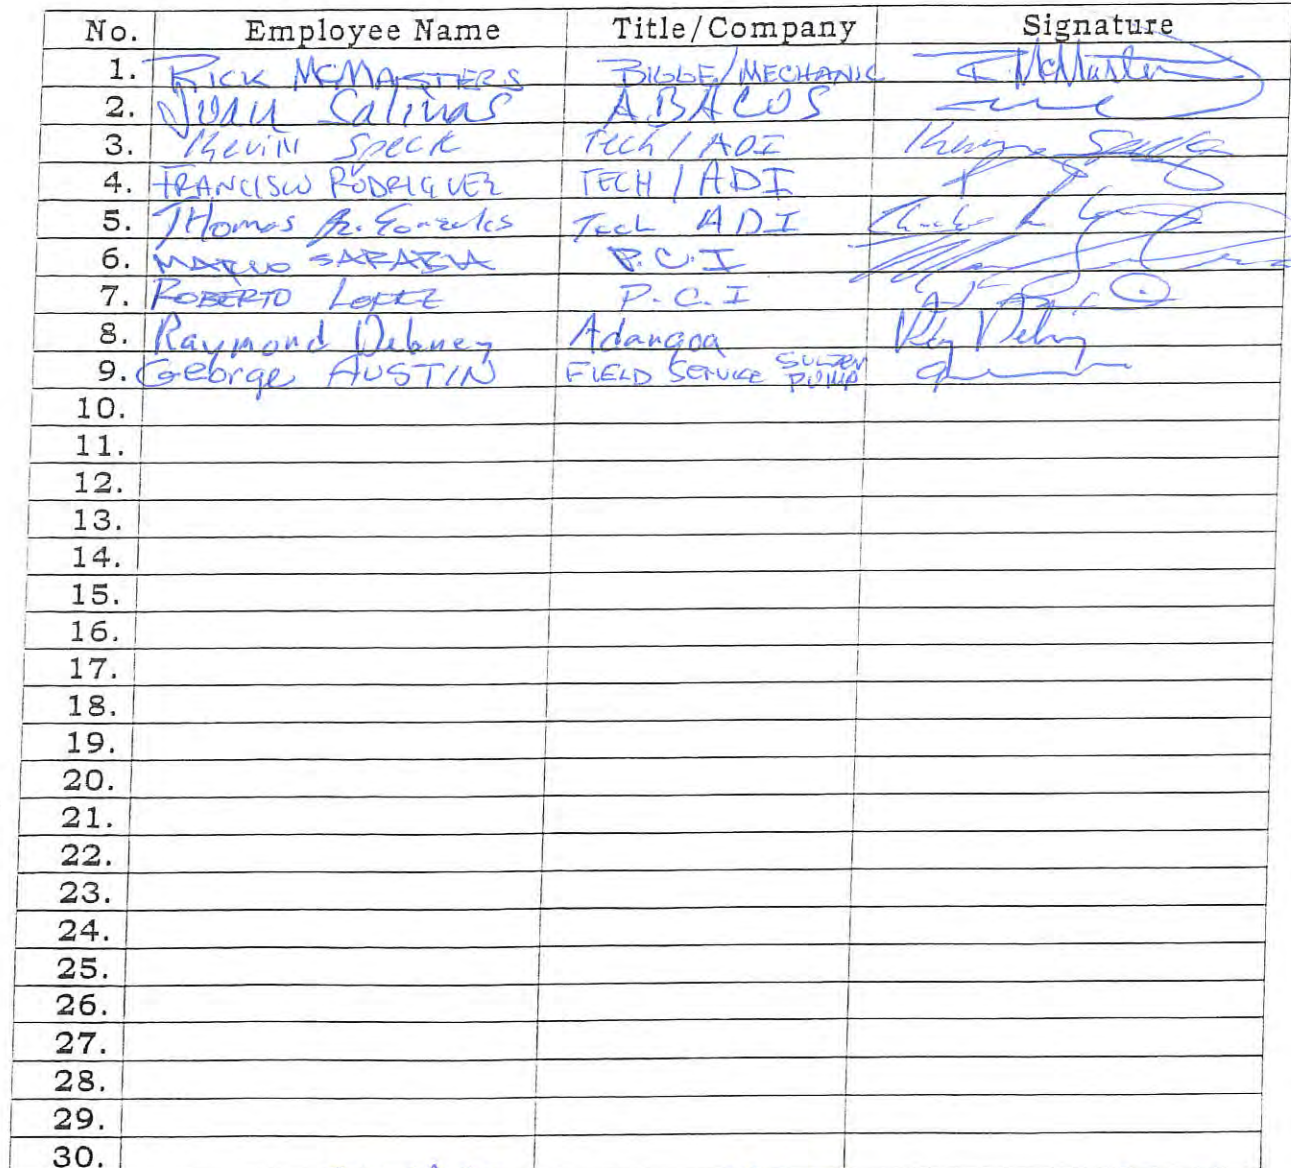 No. Employee Name Title/Company Signature
1. RICK MCMASTERS BIGGE/MECHANIC R. McMasters
2. Juan Salinas ABACOS
3. Kevin Speck Tech / ADI
4. FRANCISCO RODRIGUEZ TECH / ADI
5. THomas R. Gonzales Tech ADI
6. MARIO SARABIA P.C.I
7. ROBERTO LOPEZ P.C.I
8. Raymond Debney Adangoa Ray Debney
9. George AUSTIN FIELD SERVICE SULZER PUMP
10.
11.
12.
13.
14.
15.
16.
17.
18.
19.
20.
21.
22.
23.
24.
25.
26.
27.
28.
29.
30.